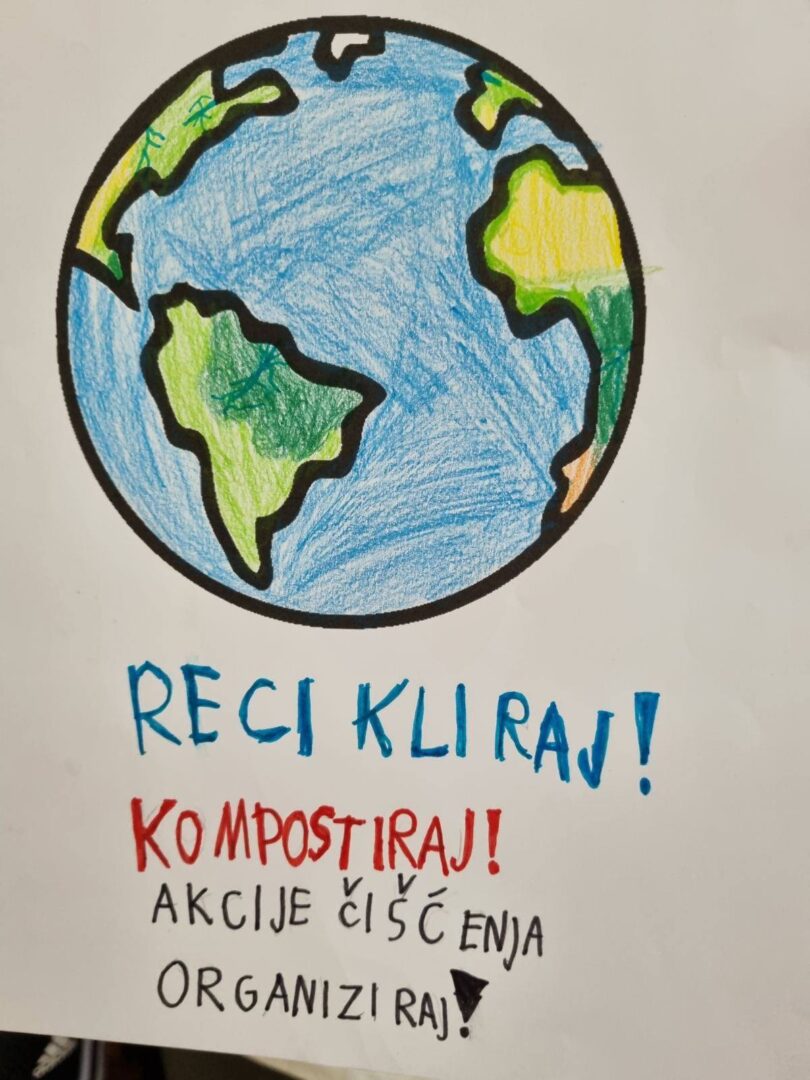 RECIKLIRAJ!
KOMPOSTIRAJ!
AKCIJE ČIŠĆENJA
ORGANIZIRAJ!